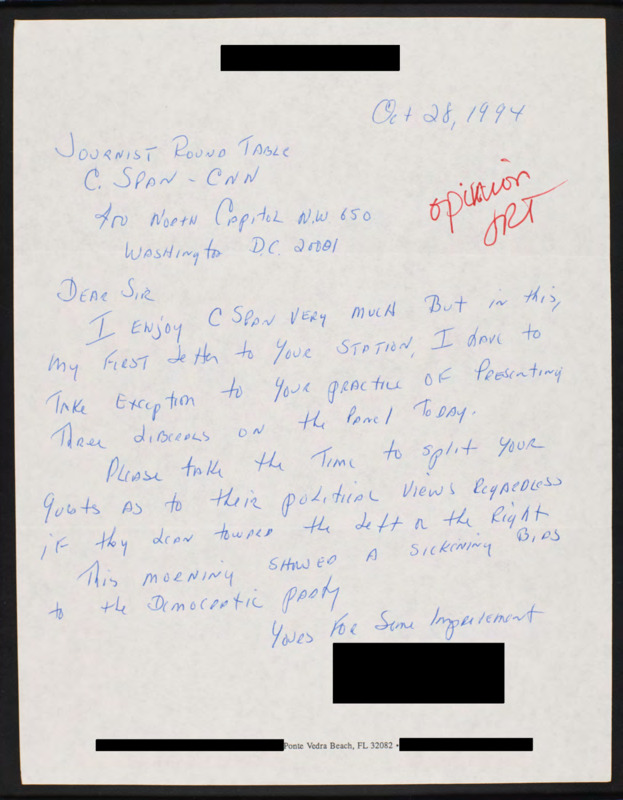 Oct 28, 1994
JOURNIST ROUND TABLE
C. SPAN - CNN
400 NORTH CAPITOL N.W 650
WASHINGTON D.C. 20001
opinion
JRT
DEAR SIR
I ENJOY C SPAN VERY MUCH But in this,
my FIRST Letter to YOUR STATION, I have to
TAKE EXCEPTION to YOUR PRACTICE OF PRESENTING
THREE LIBERALS ON the PANEL TODAY.
PLEASE take the TIME to split YOUR
guests AS to their political VIEWS REGARDLESS
iF they lean toward the Left or the Right
This morning SHOWED A SICKENING BIAS
to the DEMOCRATIC party
Yours For Some Improvement
Ponte Vedra Beach, FL 32082 •